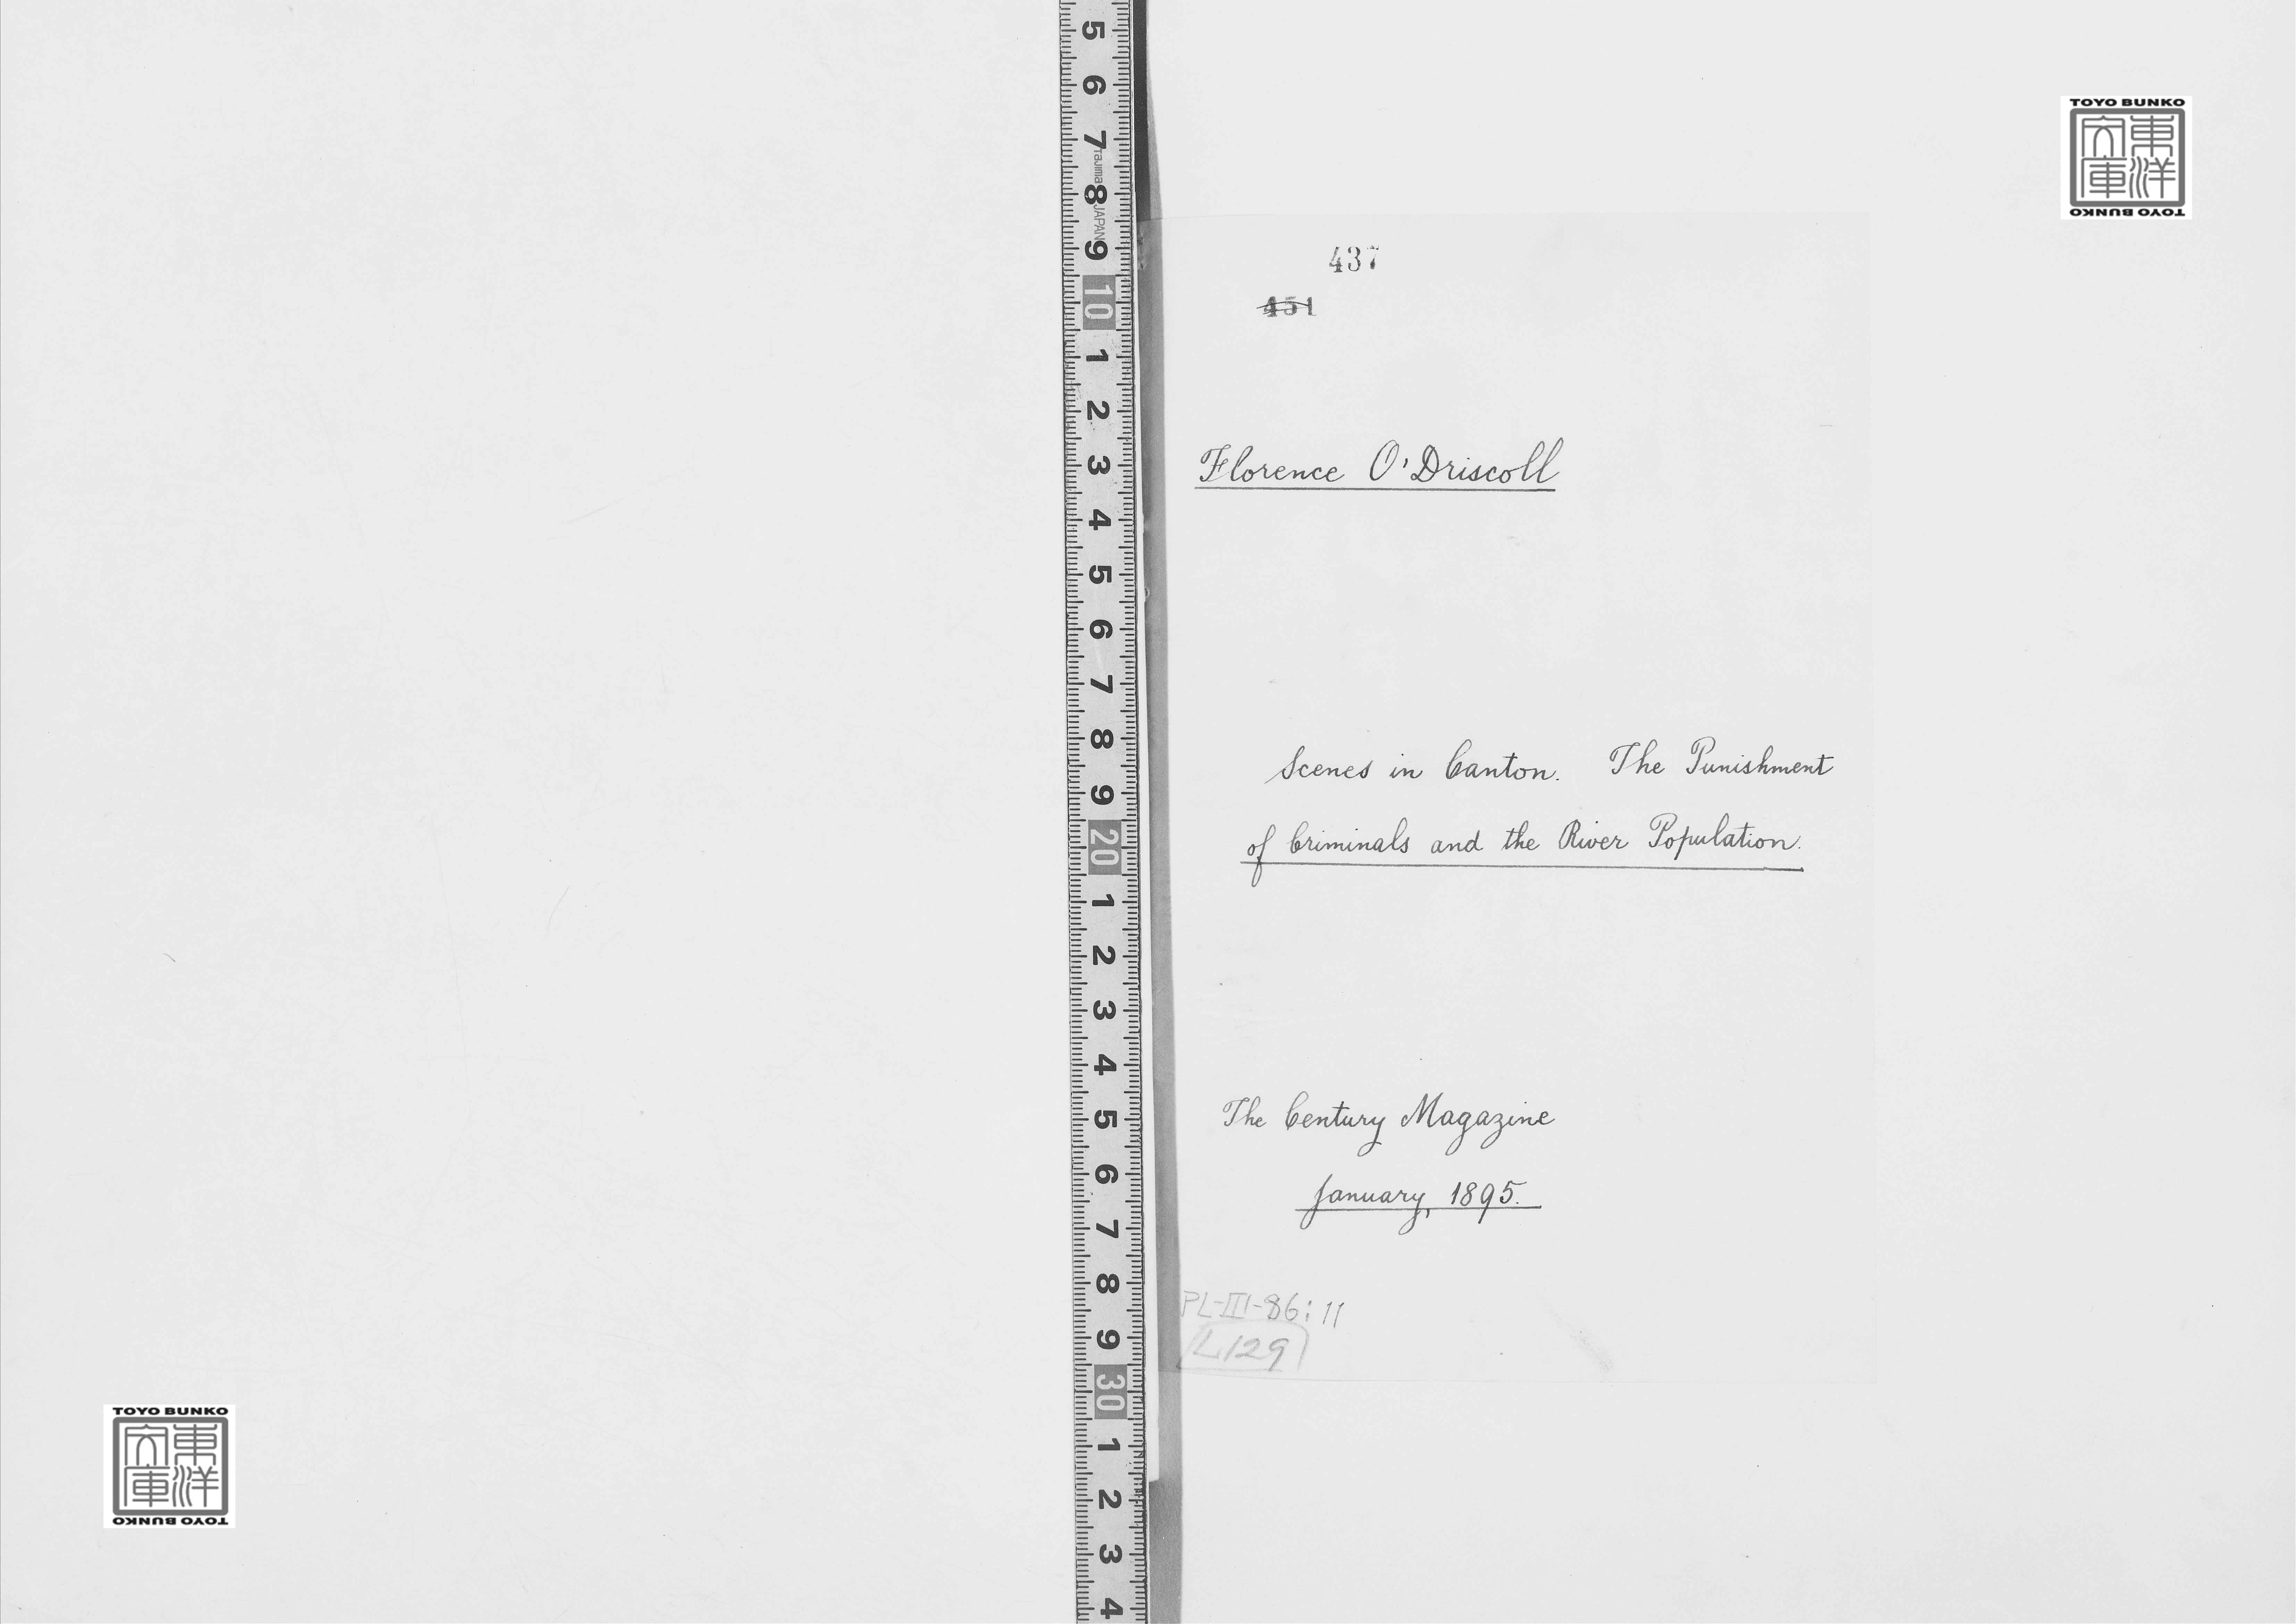 TOYO BUNKO
東洋
文庫
TOYO BUNKO
437
451
Florence O'Driscoll
Scenes in Canton. The Punishment
of Criminals and the River Population.
The Century Magazine
January, 1895.
PL-III-86:11
L129
5 6 7 8 9 10 1 2 3 4 5 6 7 8 9 20 1 2 3 4 5 6 7 8 9 30 1 2 3 4
Tajima JAPAN
TOYO BUNKO
東洋
文庫
TOYO BUNKO